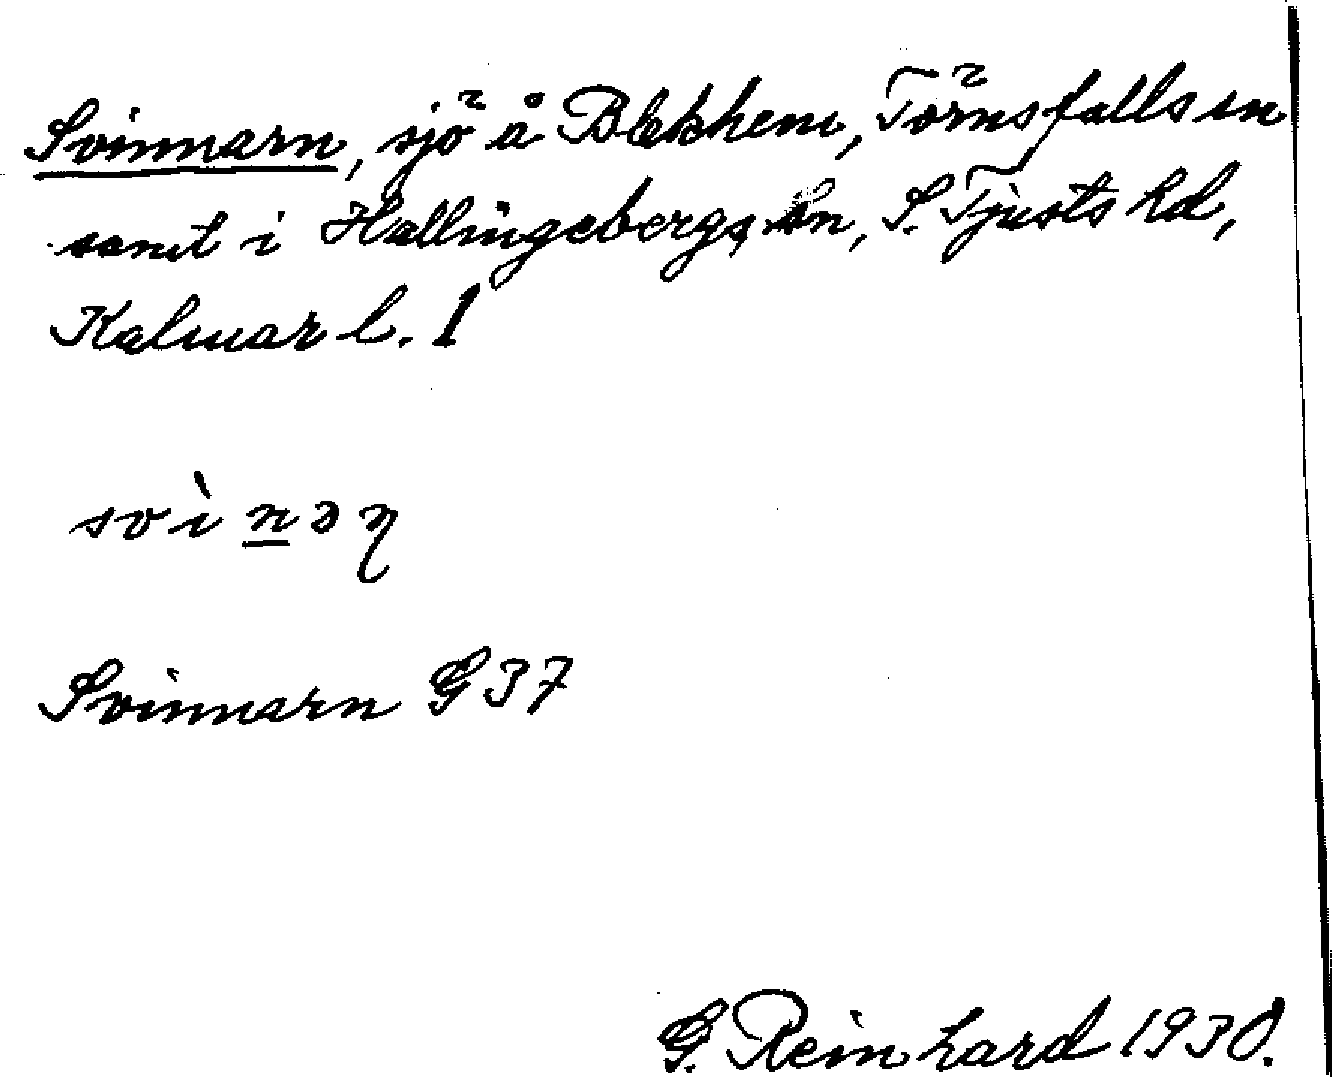 Svinnarn, sjö å Blekhem, Törnsfalls sn
samt i Hallingebergs sn, S. Tjusts hd,
Kalmar l. 1
svìnən̥
Svinnarn G 37
G. Reinhard 1930.